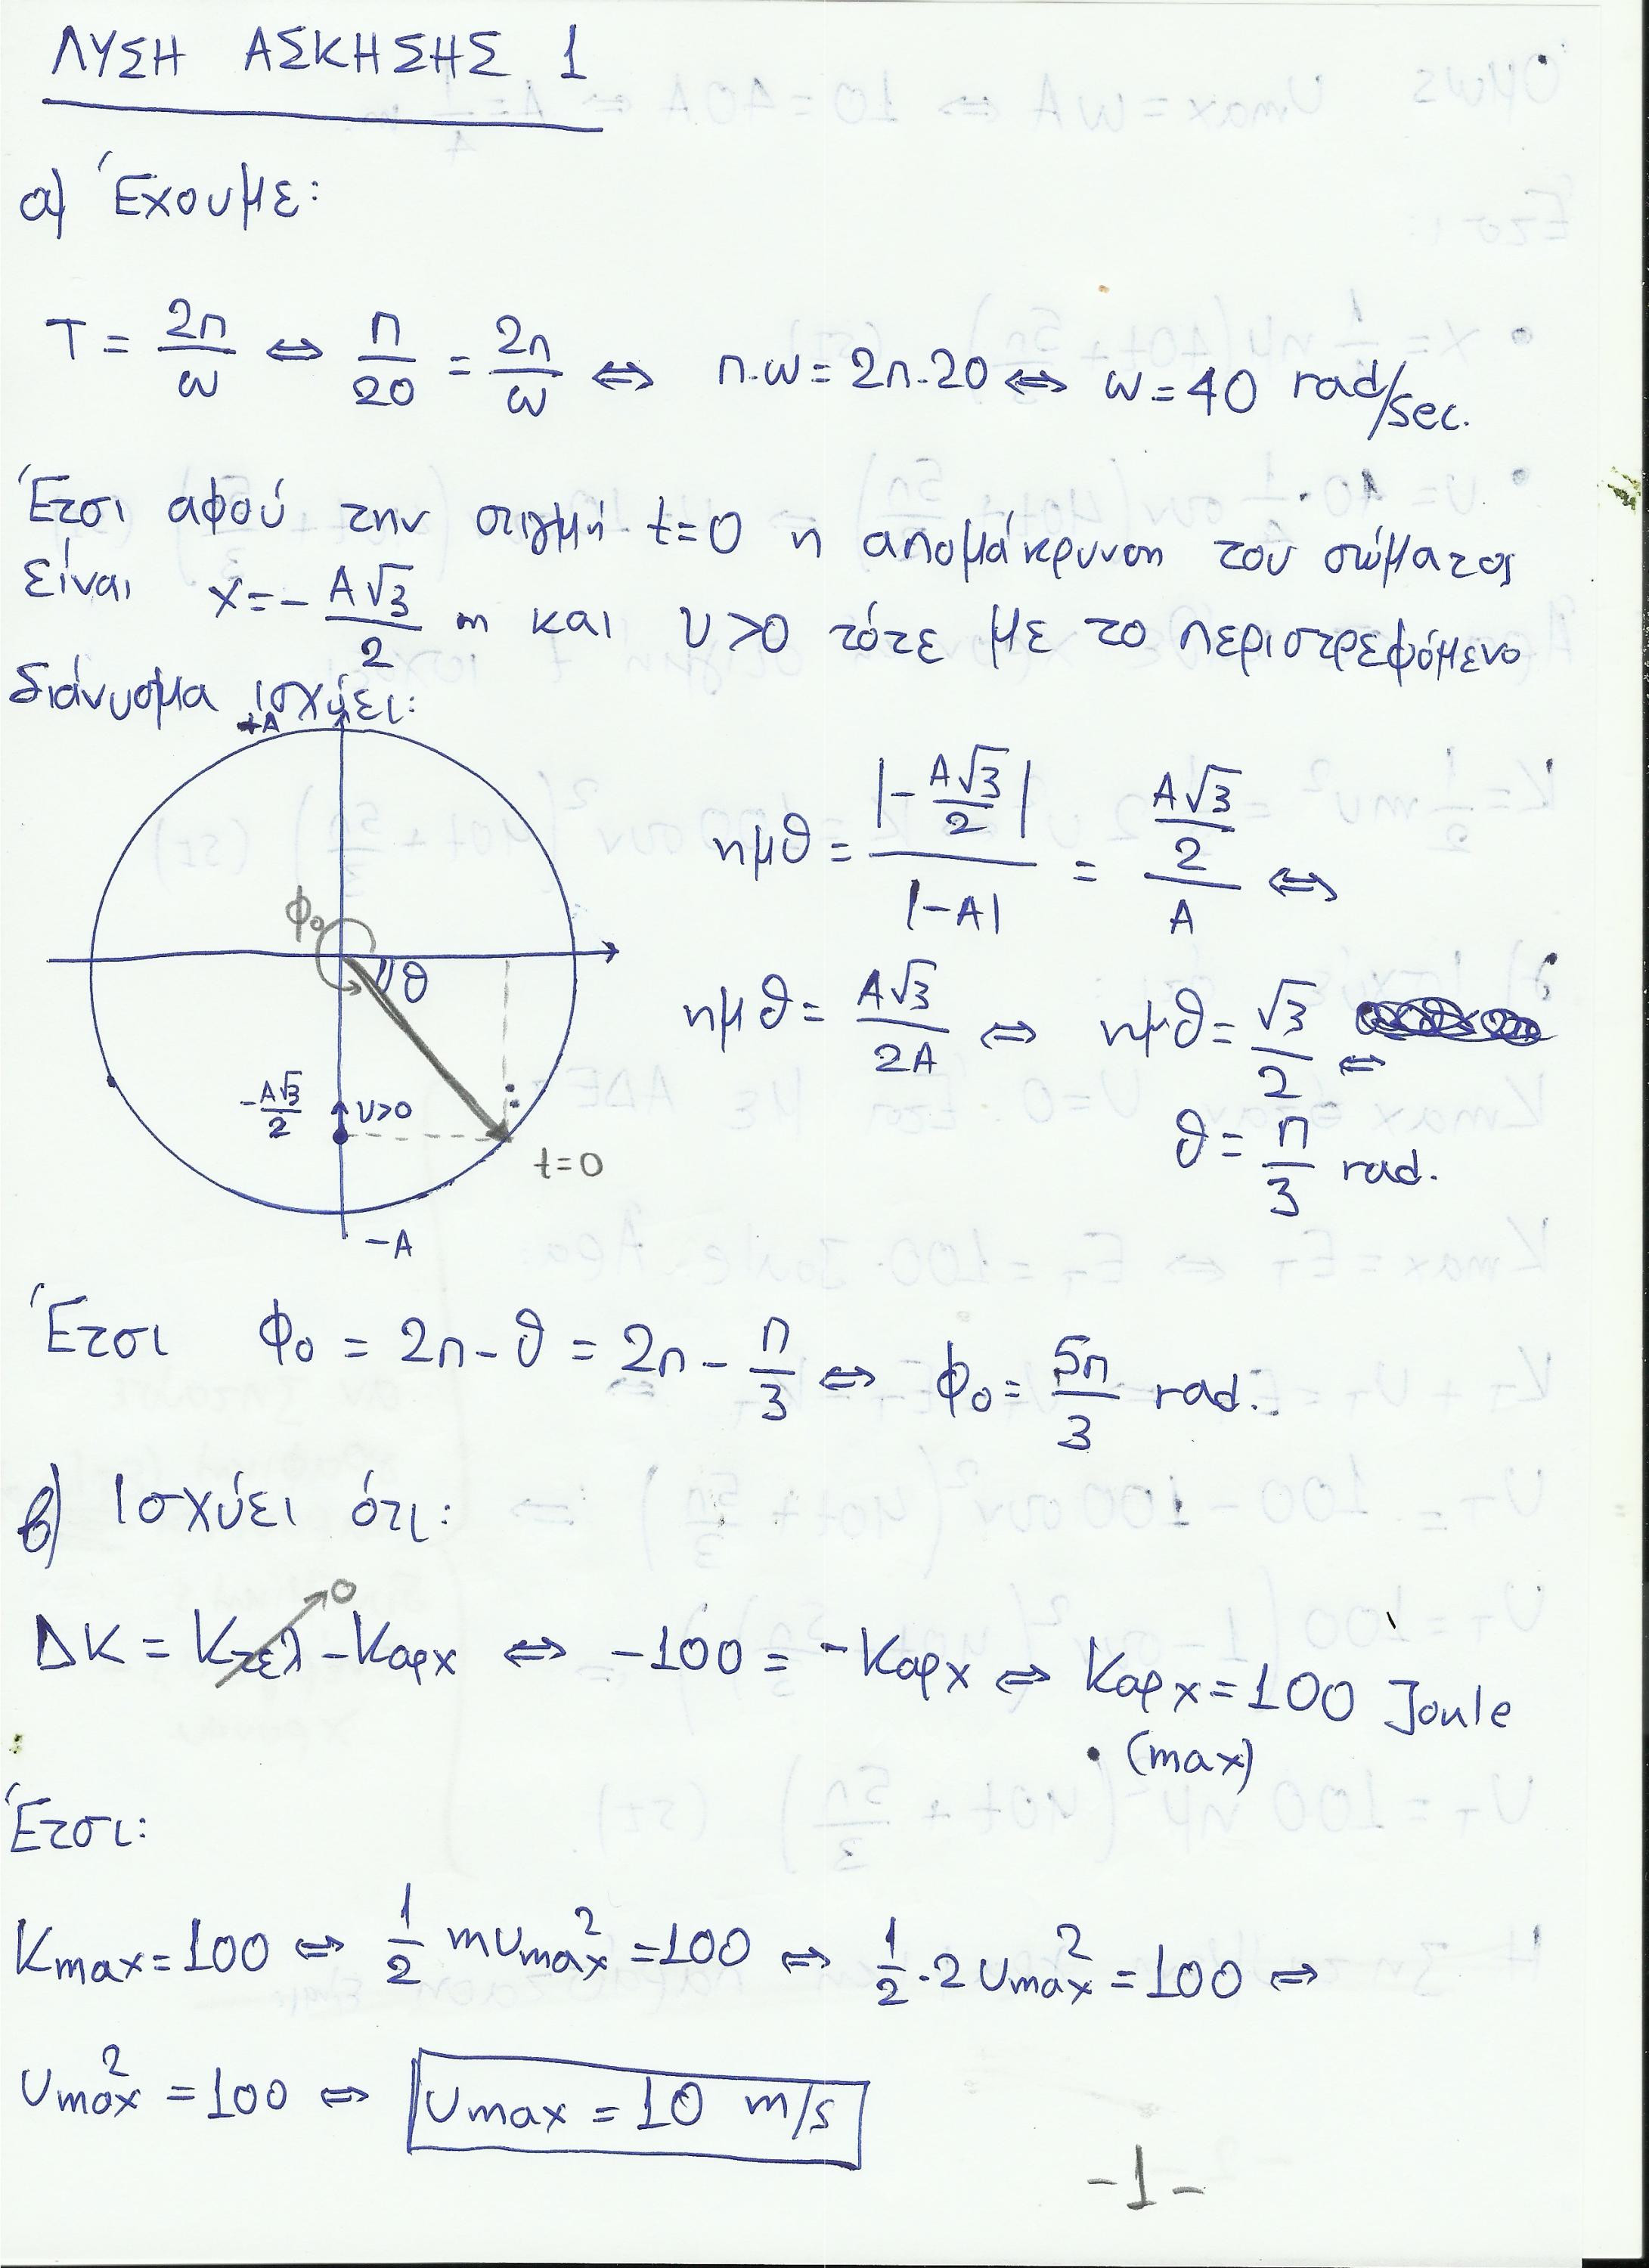 ΛΥΣΗ ΑΣΚΗΣΗΣ 1
α) Έχουμε:
T = 2π/ω ⇔ π/20 = 2π/ω ⇔ π·ω = 2π·20 ⇔ ω = 40 rad/sec.
Έτσι αφού την στιγμή t=0 η απομάκρυνση του σώματος
είναι x = -A√3/2 m και υ>0 τότε με το περιστρεφόμενο
διάνυσμα ισχύει:
+A
φ₀
θ
-A√3/2
υ>0
t=0
-A
ημθ = |-A√3/2| / |-A| = (A√3/2) / A ⇔
ημθ = A√3/2A ⇔ ημθ = √3/2 ⇔
θ = π/3 rad.
Έτσι φ₀ = 2π - θ = 2π - π/3 ⇔ φ₀ = 5π/3 rad.
β) Ισχύει ότι:
ΔΚ = Κτελ - Καρχ ⇔ -100 = -Καρχ ⇔ Καρχ = 100 Joule
0
(max)
Έτσι:
Kmax = 100 ⇔ 1/2 mυmax² = 100 ⇔ 1/2·2υmax² = 100 ⇔
υmax² = 100 ⇔ υmax = 10 m/s
-1-